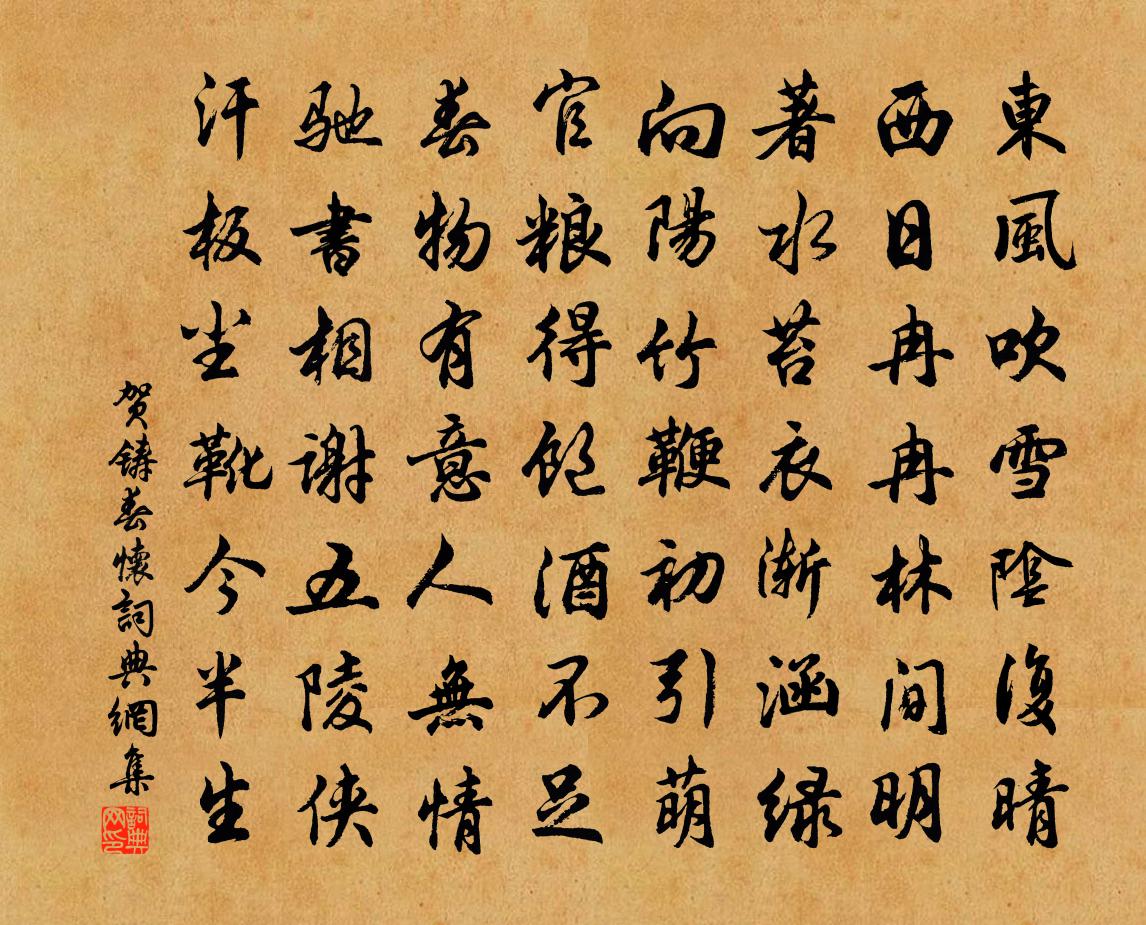 東風吹雪陰復晴
西日冉冉林間明
著水苔衣漸涵緑
向陽竹鞭初引萌
官粮得飽酒不足
春物有意人無情
馳書相謝五陵俠
汗板尘靴今半生
贺鑄春懷詞典網集
詞典网印